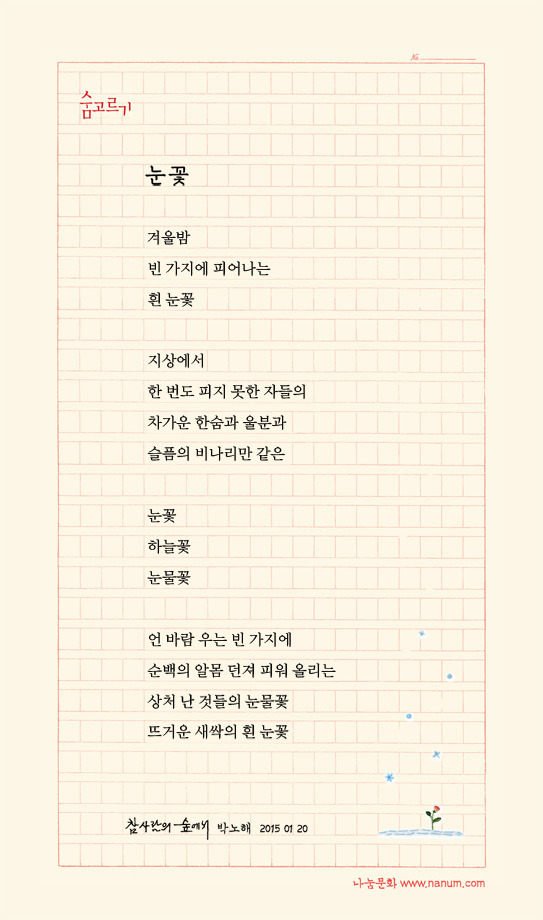 №
숨고르기
눈꽃
겨울밤
빈 가지에 피어나는
흰 눈꽃
지상에서
한 번도 피지 못한 자들의
차가운 한숨과 울분과
슬픔의 비나리만 같은
눈꽃
하늘꽃
눈물꽃
언 바람 우는 빈 가지에
순백의 알몸 던져 피워 올리는
상처 난 것들의 눈물꽃
뜨거운 새싹의 흰 눈꽃
참사람의 숲에서 박노해 2015 01 20
나눔문화 www.nanum.com